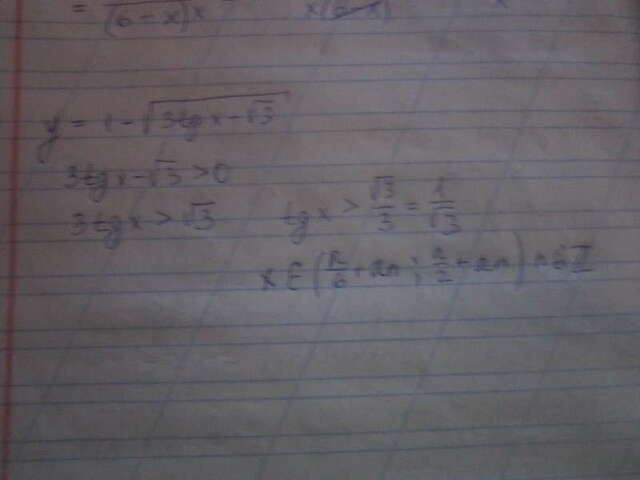 = (6-x)x x(6-x) x
y = 1 - √(3tg x - √3)
3tg x - √3 > 0
3tg x > √3 tg x > √3/3 = 1/√3
x ∈ (π/6 + πn ; π/2 + πn) n ∈ Z